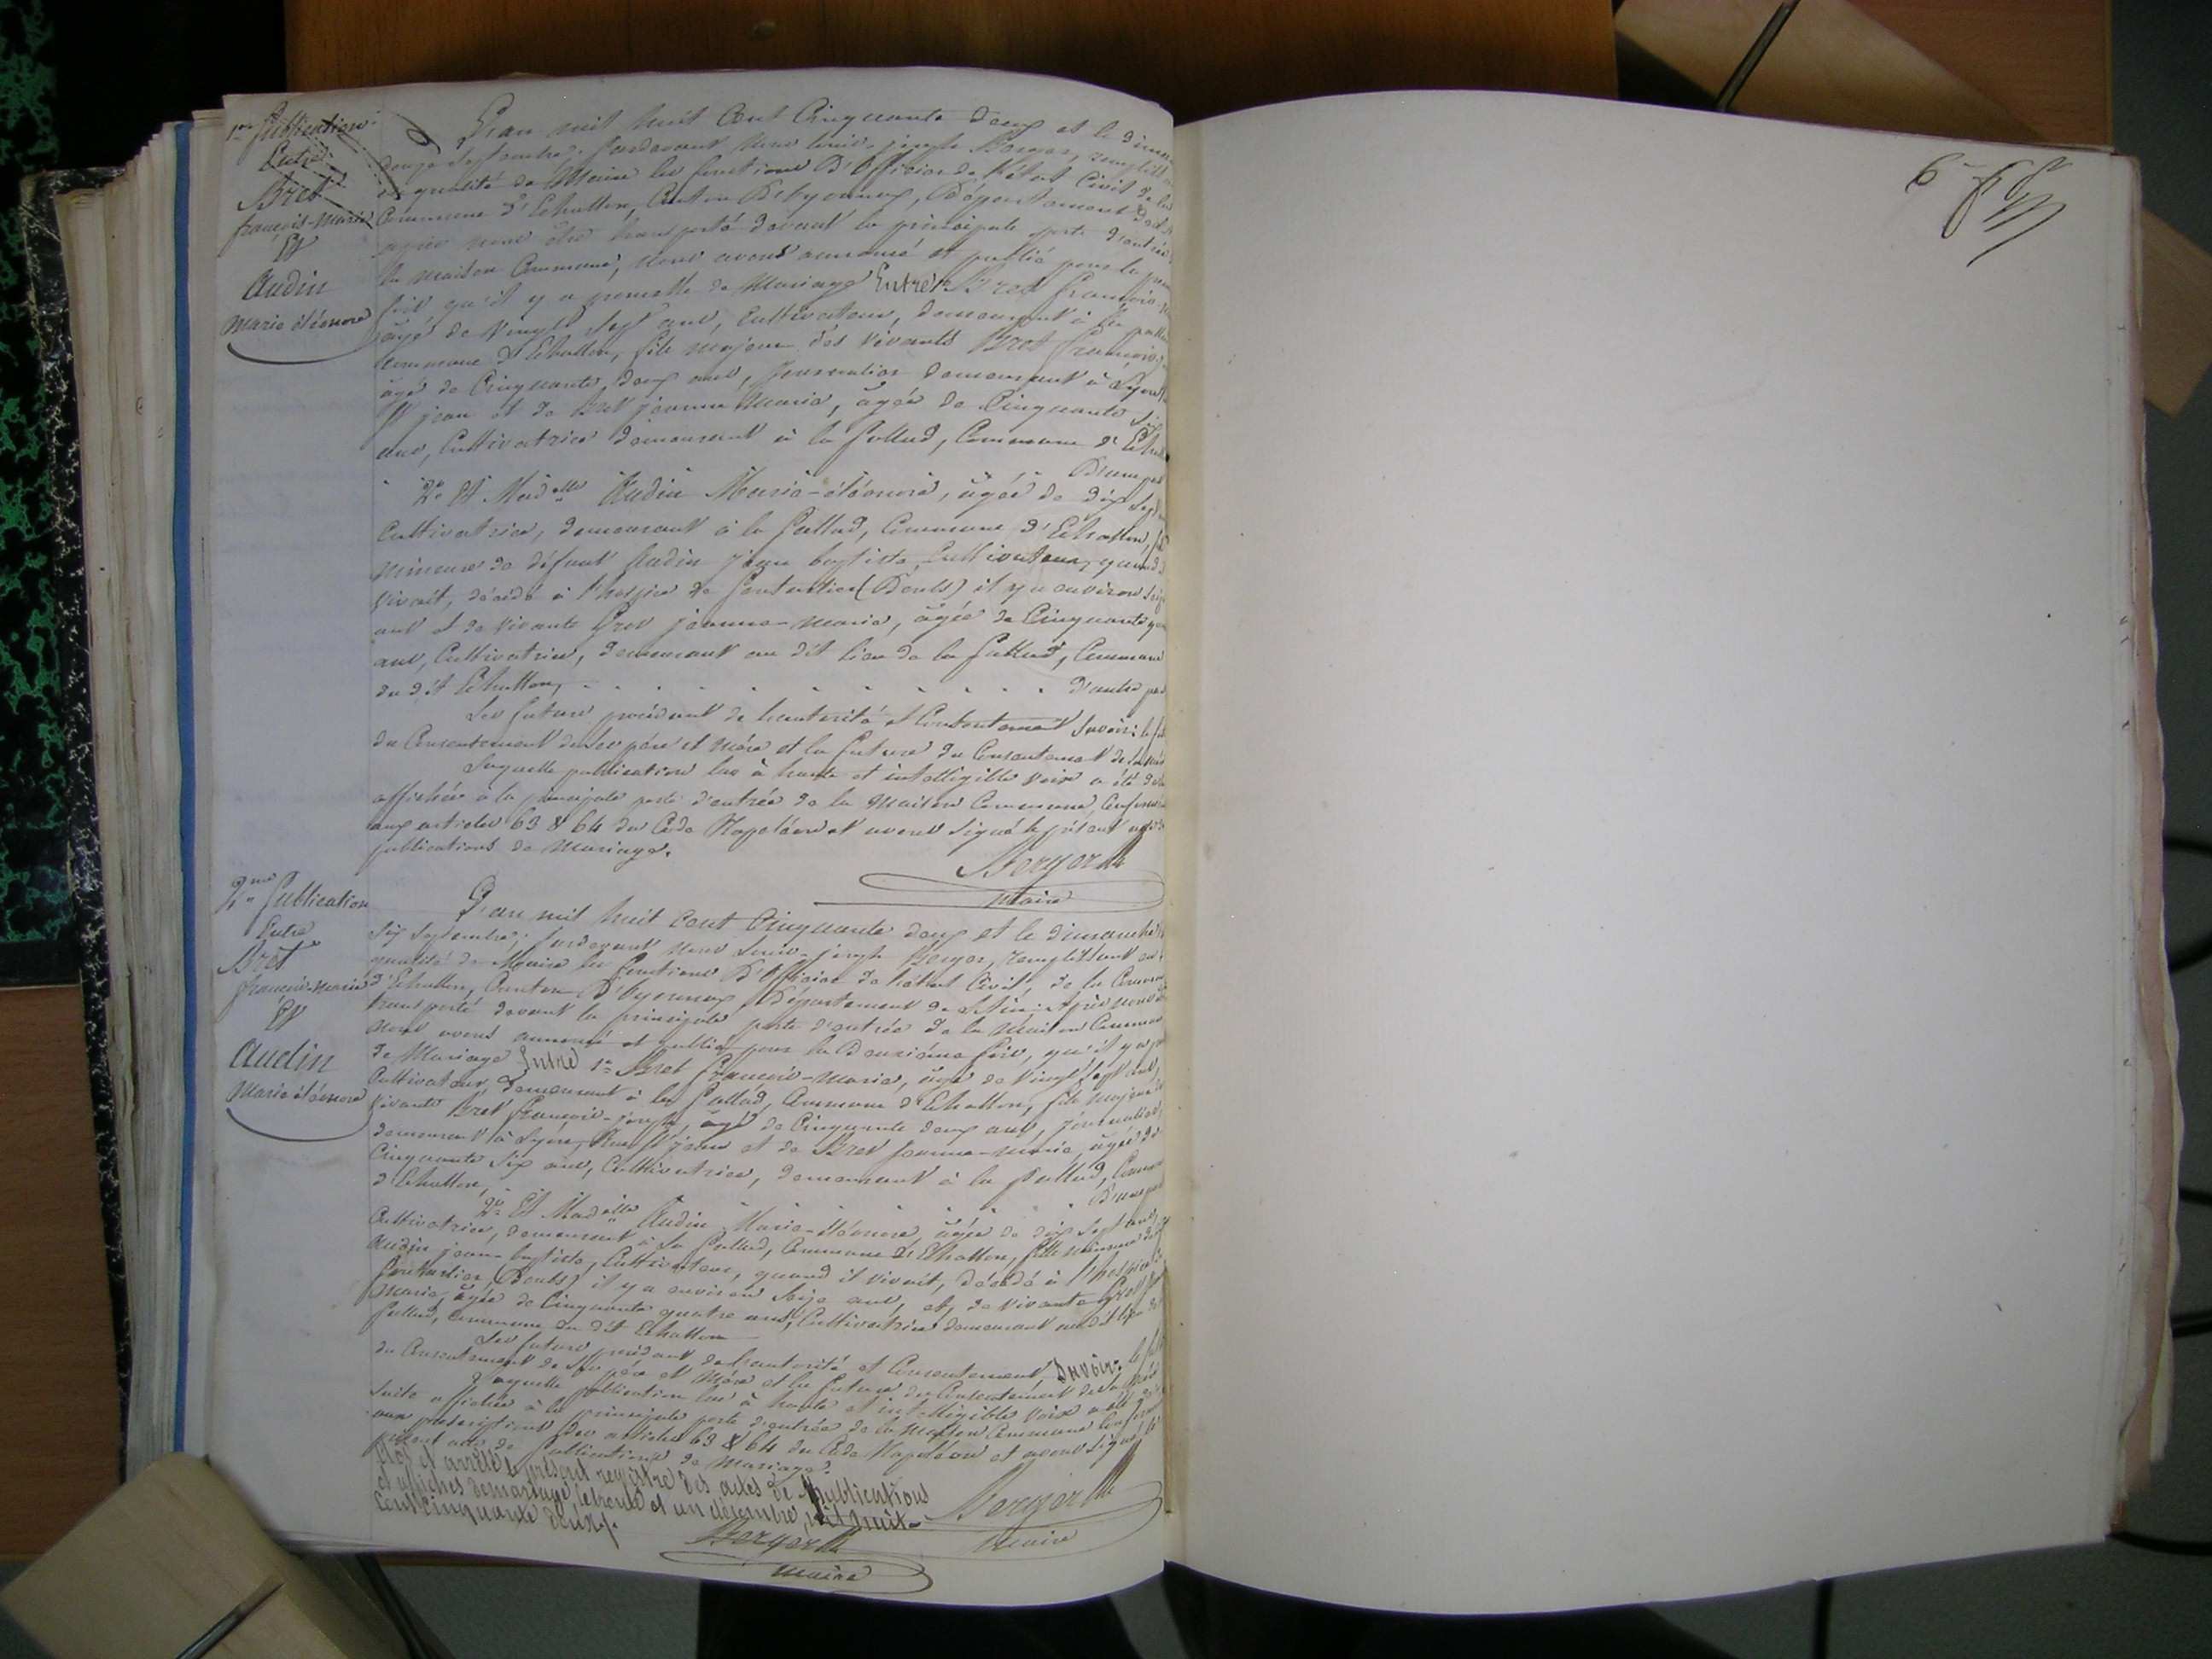 1re Publication
Entre
Bret
françois-marie
Et
Audin
Marie éléonore
L'an mil huit Cent Cinquante deux et le
douze Septembre; Pardevant Nous Louis-joseph Berger,
qualité de Maire les fonctions D'Officier de l'état Civil de la
Commune d'Echallon, Canton D'Oyonnax, Département
après nous être transporté devant la principale porte d'entrée
la maison Commune, Nous avons annoncé et publié pour la
fois qu'il y a promesse de Mariage Entre 1° Bret françois
âgé de Vingt Sept ans, Cultivateur, demeurant à la
Commune d'Echallon, fils majeur des Vivants Bret françois
âgé de Cinquante deux ans, Journalier demeurant à Lyon
St jean et de Bret jeanne Marie, âgée de Cinquante Six
ans, Cultivatrice demeurant à la Pallud, Commune d'
D'une
2° Et Madelle Audin Marie-éléonore, âgée de dix Sept
Cultivatrice, demeurant à la Pallud, Commune d'Echallon,
mineure de défunt Audin jean baptiste, Cultivateur, quand
vivait, décédé à l'hospice de Pontarlier (Doubs) il y a environ
ans et de vivante Grosv jeanne-marie, âgée de Cinquante
ans, Cultivatrice, demeurant au dit lieu de la Pallud, Commune
du dit Echallon, d'autre
Les future procédant de l'autorité et Consentement Savoir:
du Consentement de Ses père et mère et la future du Consentement de
Laquelle publication lue à haute et intelligible voix a été
affichée à la principale porte d'entrée de la Maison Commune,
aux articles 63 & 64 du Code Napoléon et avons Signé le présent acte
publications de Mariage.
Berger
Maire
2me Publication
Entre
Bret
françois-marie
Et
Audin
Marie éléonore
L'an mil huit Cent Cinquante deux et le dimanche
Septembre; Pardevant Nous Louis-joseph Berger, remplissant
qualité de Maire les fonctions D'Officier de l'état Civil, de la
d'Echallon, Canton D'Oyonnax, Département de l'Ain; Après nous
transporté devant la principale porte d'entrée de la Maison Commune
Nous avons annoncé et publié pour la Deuxième fois, qu'il y a
de Mariage Entre 1° Bret françois-marie, âgé de Vingt Sept ans,
Cultivateur, demeurant à la Pallud, Commune d'Echallon, fils majeur
vivants Bret françois-joseph, âgé de Cinquante deux ans, journalier,
demeurant à Lyon, Rue St jean et de Bret jeanne-marie, âgée de
Cinquante Six ans, Cultivatrice, demeurant à la Pallud,
d'Echallon, D'une
2° Et Madelle Audin Marie-éléonore, âgée de dix Sept ans,
Cultivatrice, demeurant à la Pallud, Commune d'Echallon, fille mineure
Audin jean-baptiste, Cultivateur, quand il vivait, décédé à l'hospice
Pontarlier (Doubs) il y a environ Seize ans, et, de vivante
marie, âgée de Cinquante quatre ans, Cultivatrice demeurant au dit lieu
Pallud, Commune du dit Echallon
Les future procédant de l'autorité et Consentement, Savoir:
du Consentement de Ses père et Mère et la future du Consentement de
Laquelle publication lue à haute et intelligible voix a été
suite affichée à la principale porte d'entrée de la Maison Commune
aux prescriptions des articles 63 & 64 du Code Napoléon et avons Signé le
présent acte de Publications de Mariage.
Clos et arrêté le présent registre des actes de Publications
et affiches de mariage, le trente et un décembre mil huit
cent cinquante deux.
Berger
Maire
Berger
maire
6